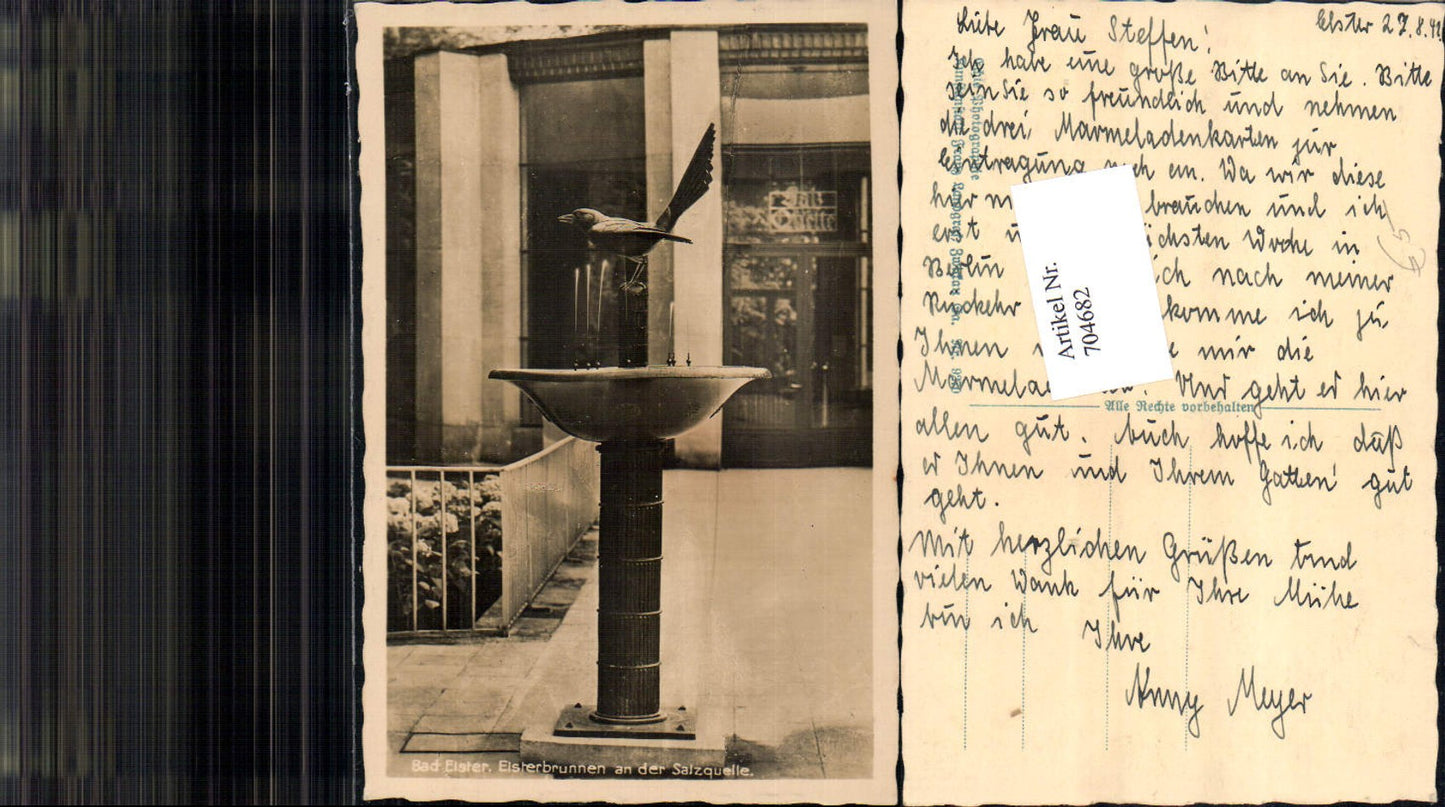 Salz
Quelle
Bad Elster. Elsterbrunnen an der Salzquelle.
Elster 27.8.41
Liebe Frau Steffen!
Ich habe eine große Bitte an Sie. Bitte
sein Sie so freundlich und nehmen
die drei Marmeladenkarten zur
Eintragung noch an. Da wir diese
hier brauchen und ich
erst
Woche in
Berlin ich nach meiner
Rückkehr komme ich zu
Ihnen mir die
Und geht es hier
allen gut. Auch hoffe ich daß
es Ihnen und Ihrem Gatten gut
geht.
Mit herzlichen Grüßen und
vielen Dank für Ihre Mühe
bin ich
Ihre
Anny Meyer
Artikel Nr.
704682
Alle Rechte vorbehalten